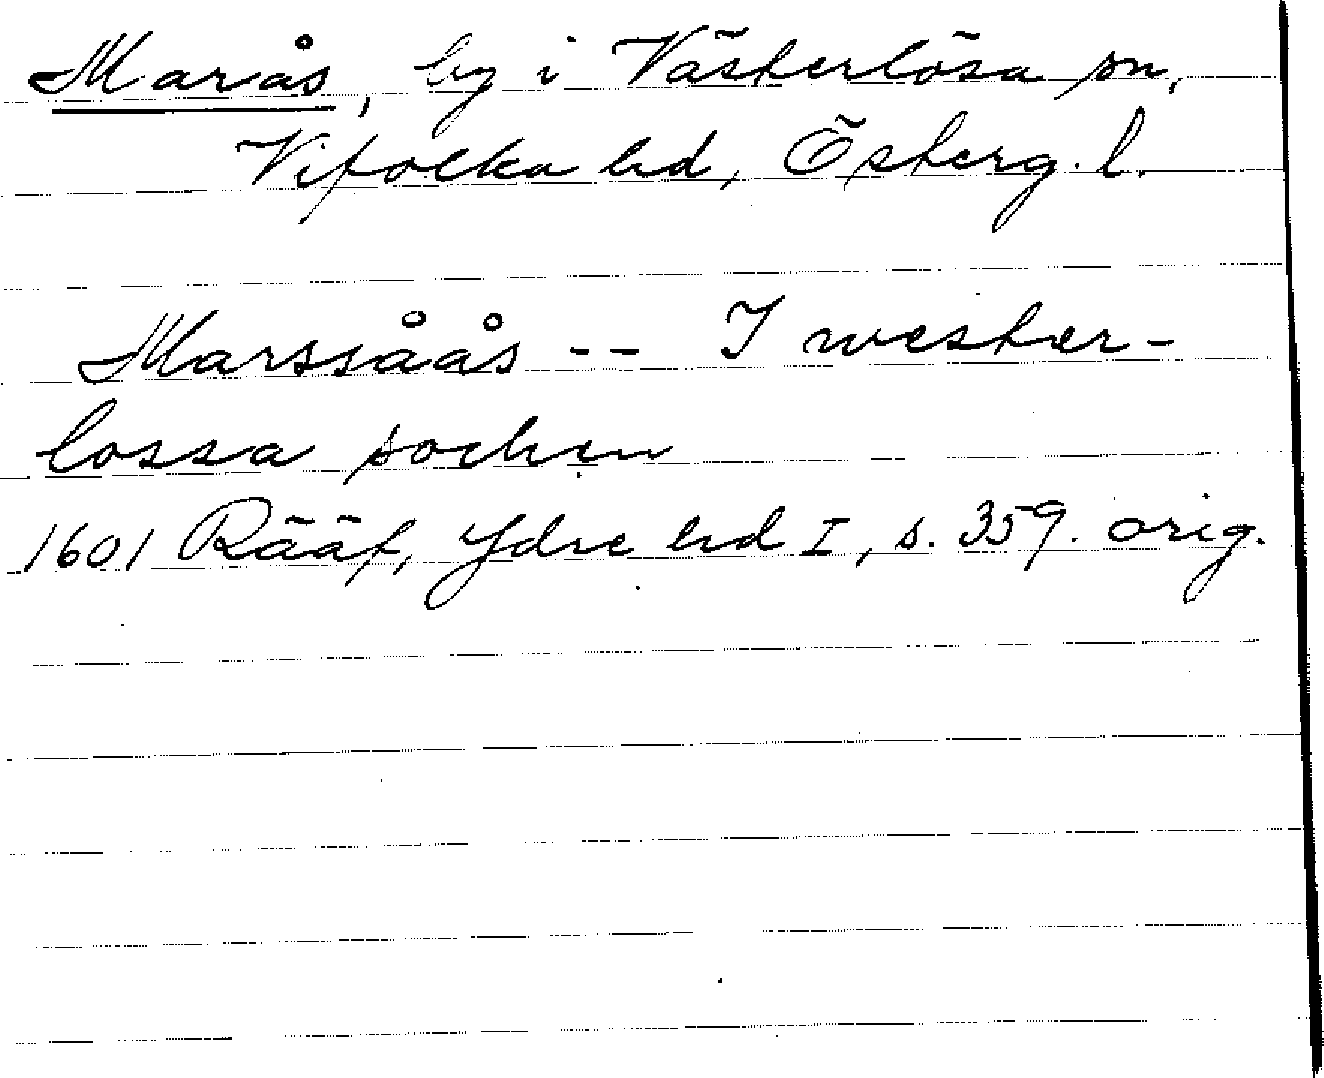 Marås, by i Västerlösa sn,
Vifolka hd, Österg. l.
Marssåås -- I wester-
lossa sochen
1601 Rääf, Ydre hd I, s. 359. orig.